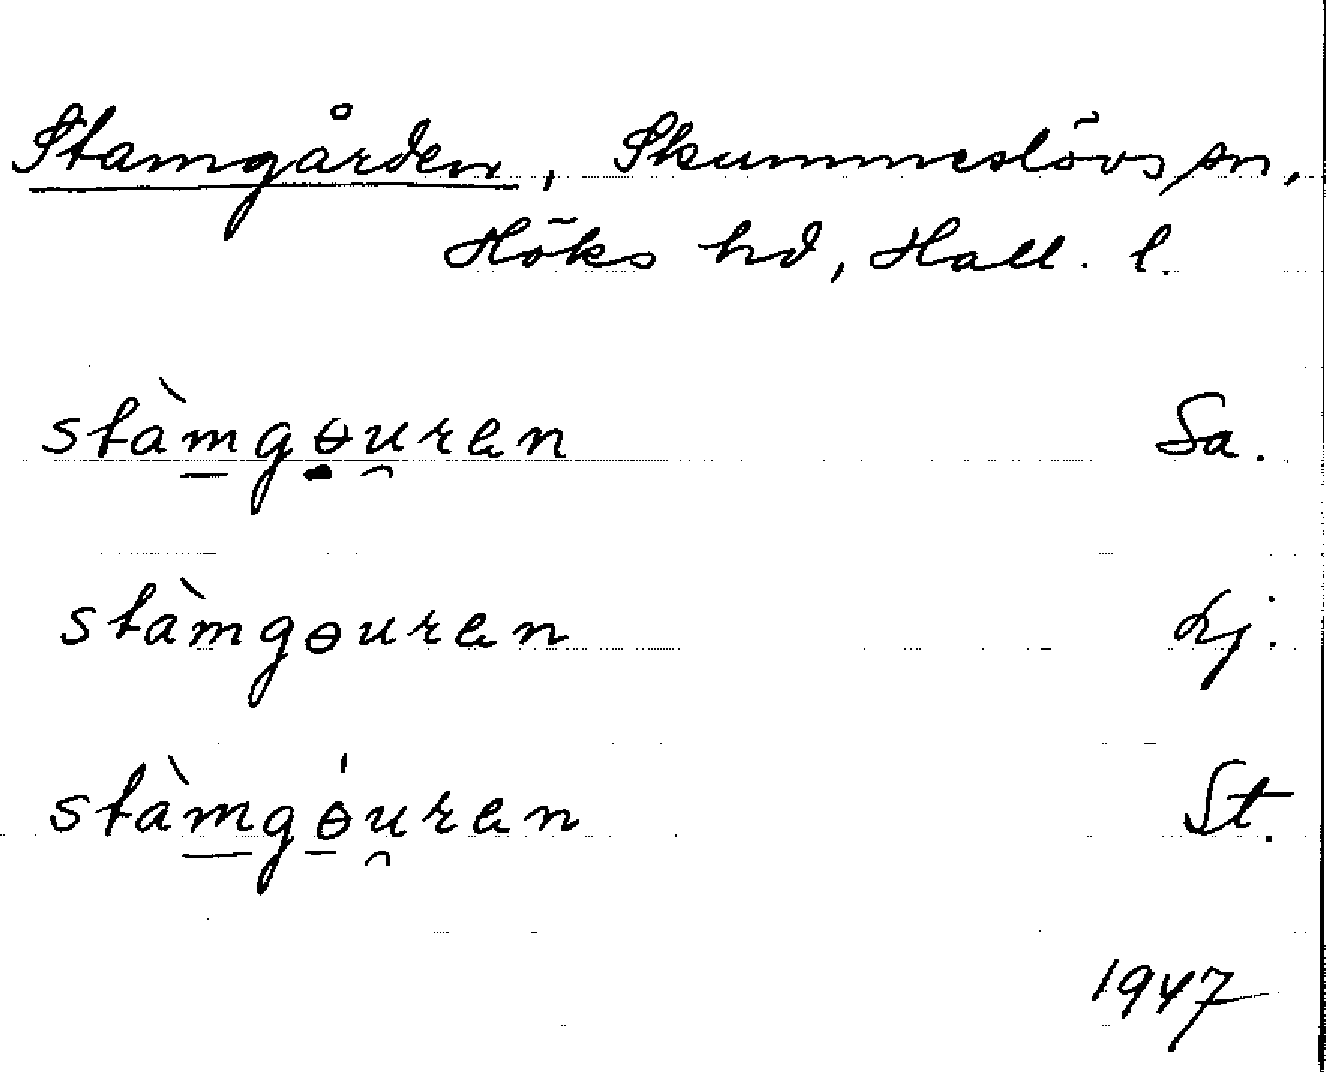 Stamgården, Skummeslövs sn,
Höks hd, Hall. l.
stàmgɵu̯ren Sa.
stàmgɵuren Lj.
stàmgɵ́u̯ren St.
1947